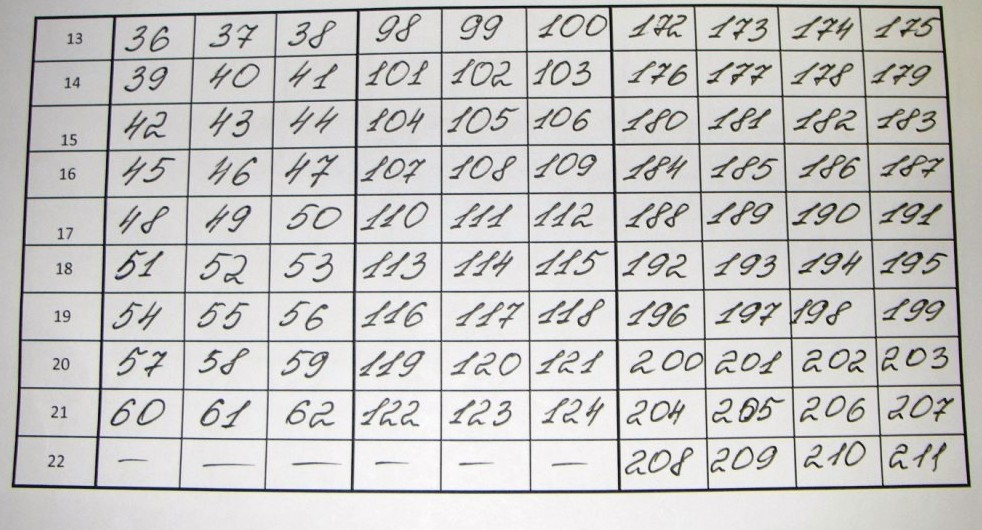 13 36 37 38 98 99 100 172 173 174 175
14 39 40 41 101 102 103 176 177 178 179
15 42 43 44 104 105 106 180 181 182 183
16 45 46 47 107 108 109 184 185 186 187
17 48 49 50 110 111 112 188 189 190 191
18 51 52 53 113 114 115 192 193 194 195
19 54 55 56 116 117 118 196 197 198 199
20 57 58 59 119 120 121 200 201 202 203
21 60 61 62 122 123 124 204 205 206 207
22 — — — — — — 208 209 210 211